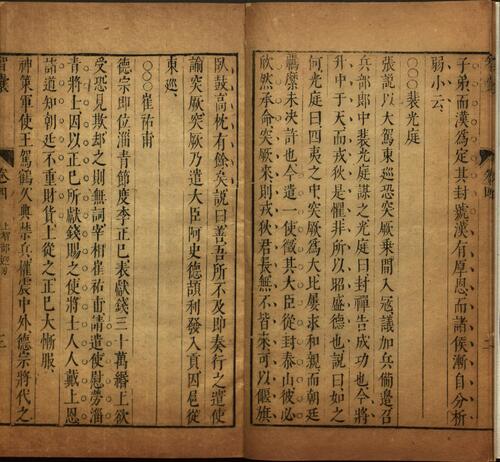 子弟而漢為定其封號漢有厚恩而諸侯漸自分析
弱小云
○○裴光庭
張說以大駕東巡恐突厥乘間入寇議加兵備邊召
兵部郎中裴光庭謀之光庭曰封禪告成功也今將
升中于天而戎狄是懼非所以昭盛德也說曰如之
何光庭曰四夷之中突厥為大比屢求和親而朝廷
羈縻未决許也今遣一使徵其大臣從封泰山彼必
欣然承命突厥來則戎狄君長無不皆來可以偃旗
臥鼓高枕有餘矣說曰善吾所不及即奏行之遣使
諭突厥突厥乃遣大臣阿史德頡利發入貢因扈從
東巡
○○崔祐甫
德宗即位淄青節度李正巳表獻錢三十萬緡上欲
受恐見欺却之則無詞宰相崔祐甫請遣使慰勞淄
青將士因以正巳所獻錢賜之使將士人人戴上恩
諸道知朝廷不重財貨上從之正巳大慚服
神策軍使王駕鶴久典禁兵權震中外德宗將代之
卷四